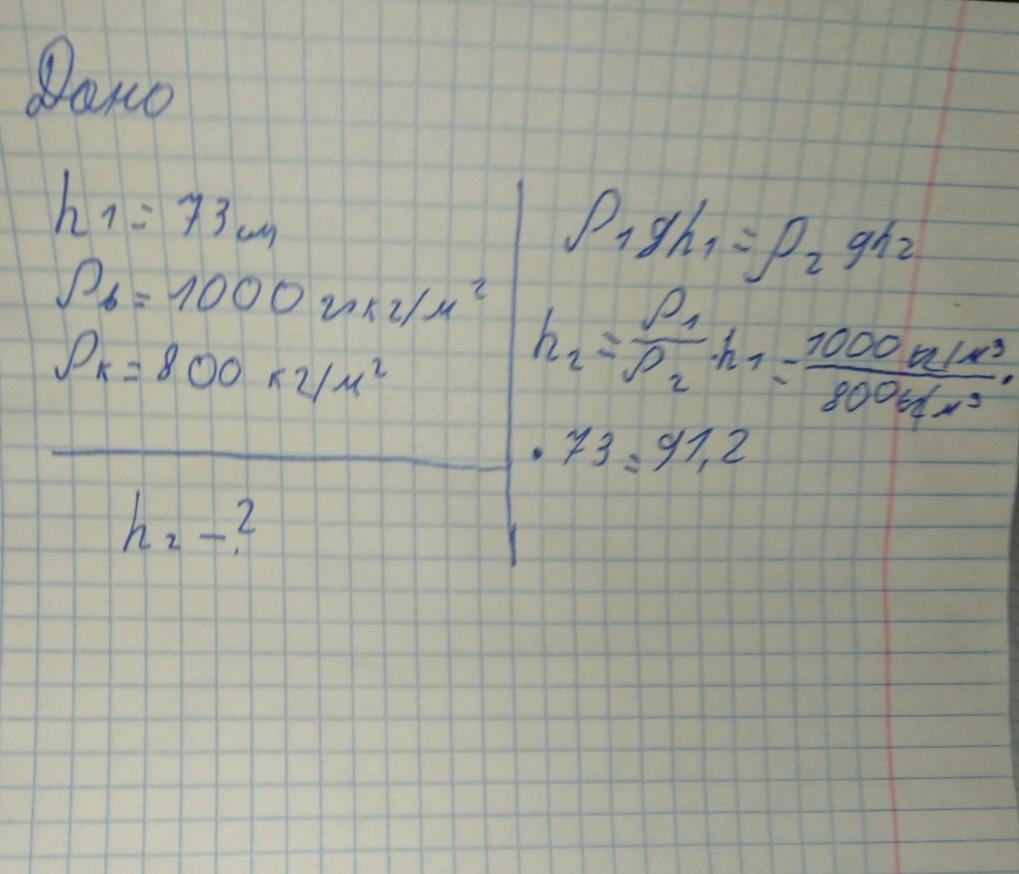 Дано
h1 = 73 см
ρв = 1000 кг/м²
ρк = 800 кг/м²
h2 - ?
ρ1gh1 = ρ2gh2
h2 = ρ1/ρ2 · h1 = 1000 кг/м³ / 800 кг/м³ ·
· 73 = 91,2